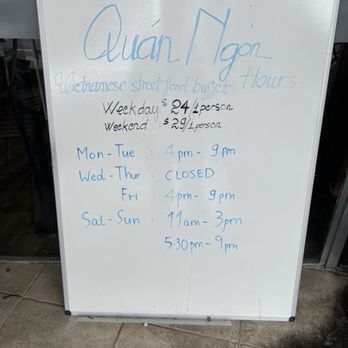 Quán Ngon
Vietnamese street food buffet. Hours:
Weekday: $24/1person
Weekend: $29/1person
Mon-Tue : 4pm - 9pm
Wed-Thur : CLOSED
Fri : 4pm - 9pm
Sat-Sun : 11am - 3pm
5:30pm - 9pm